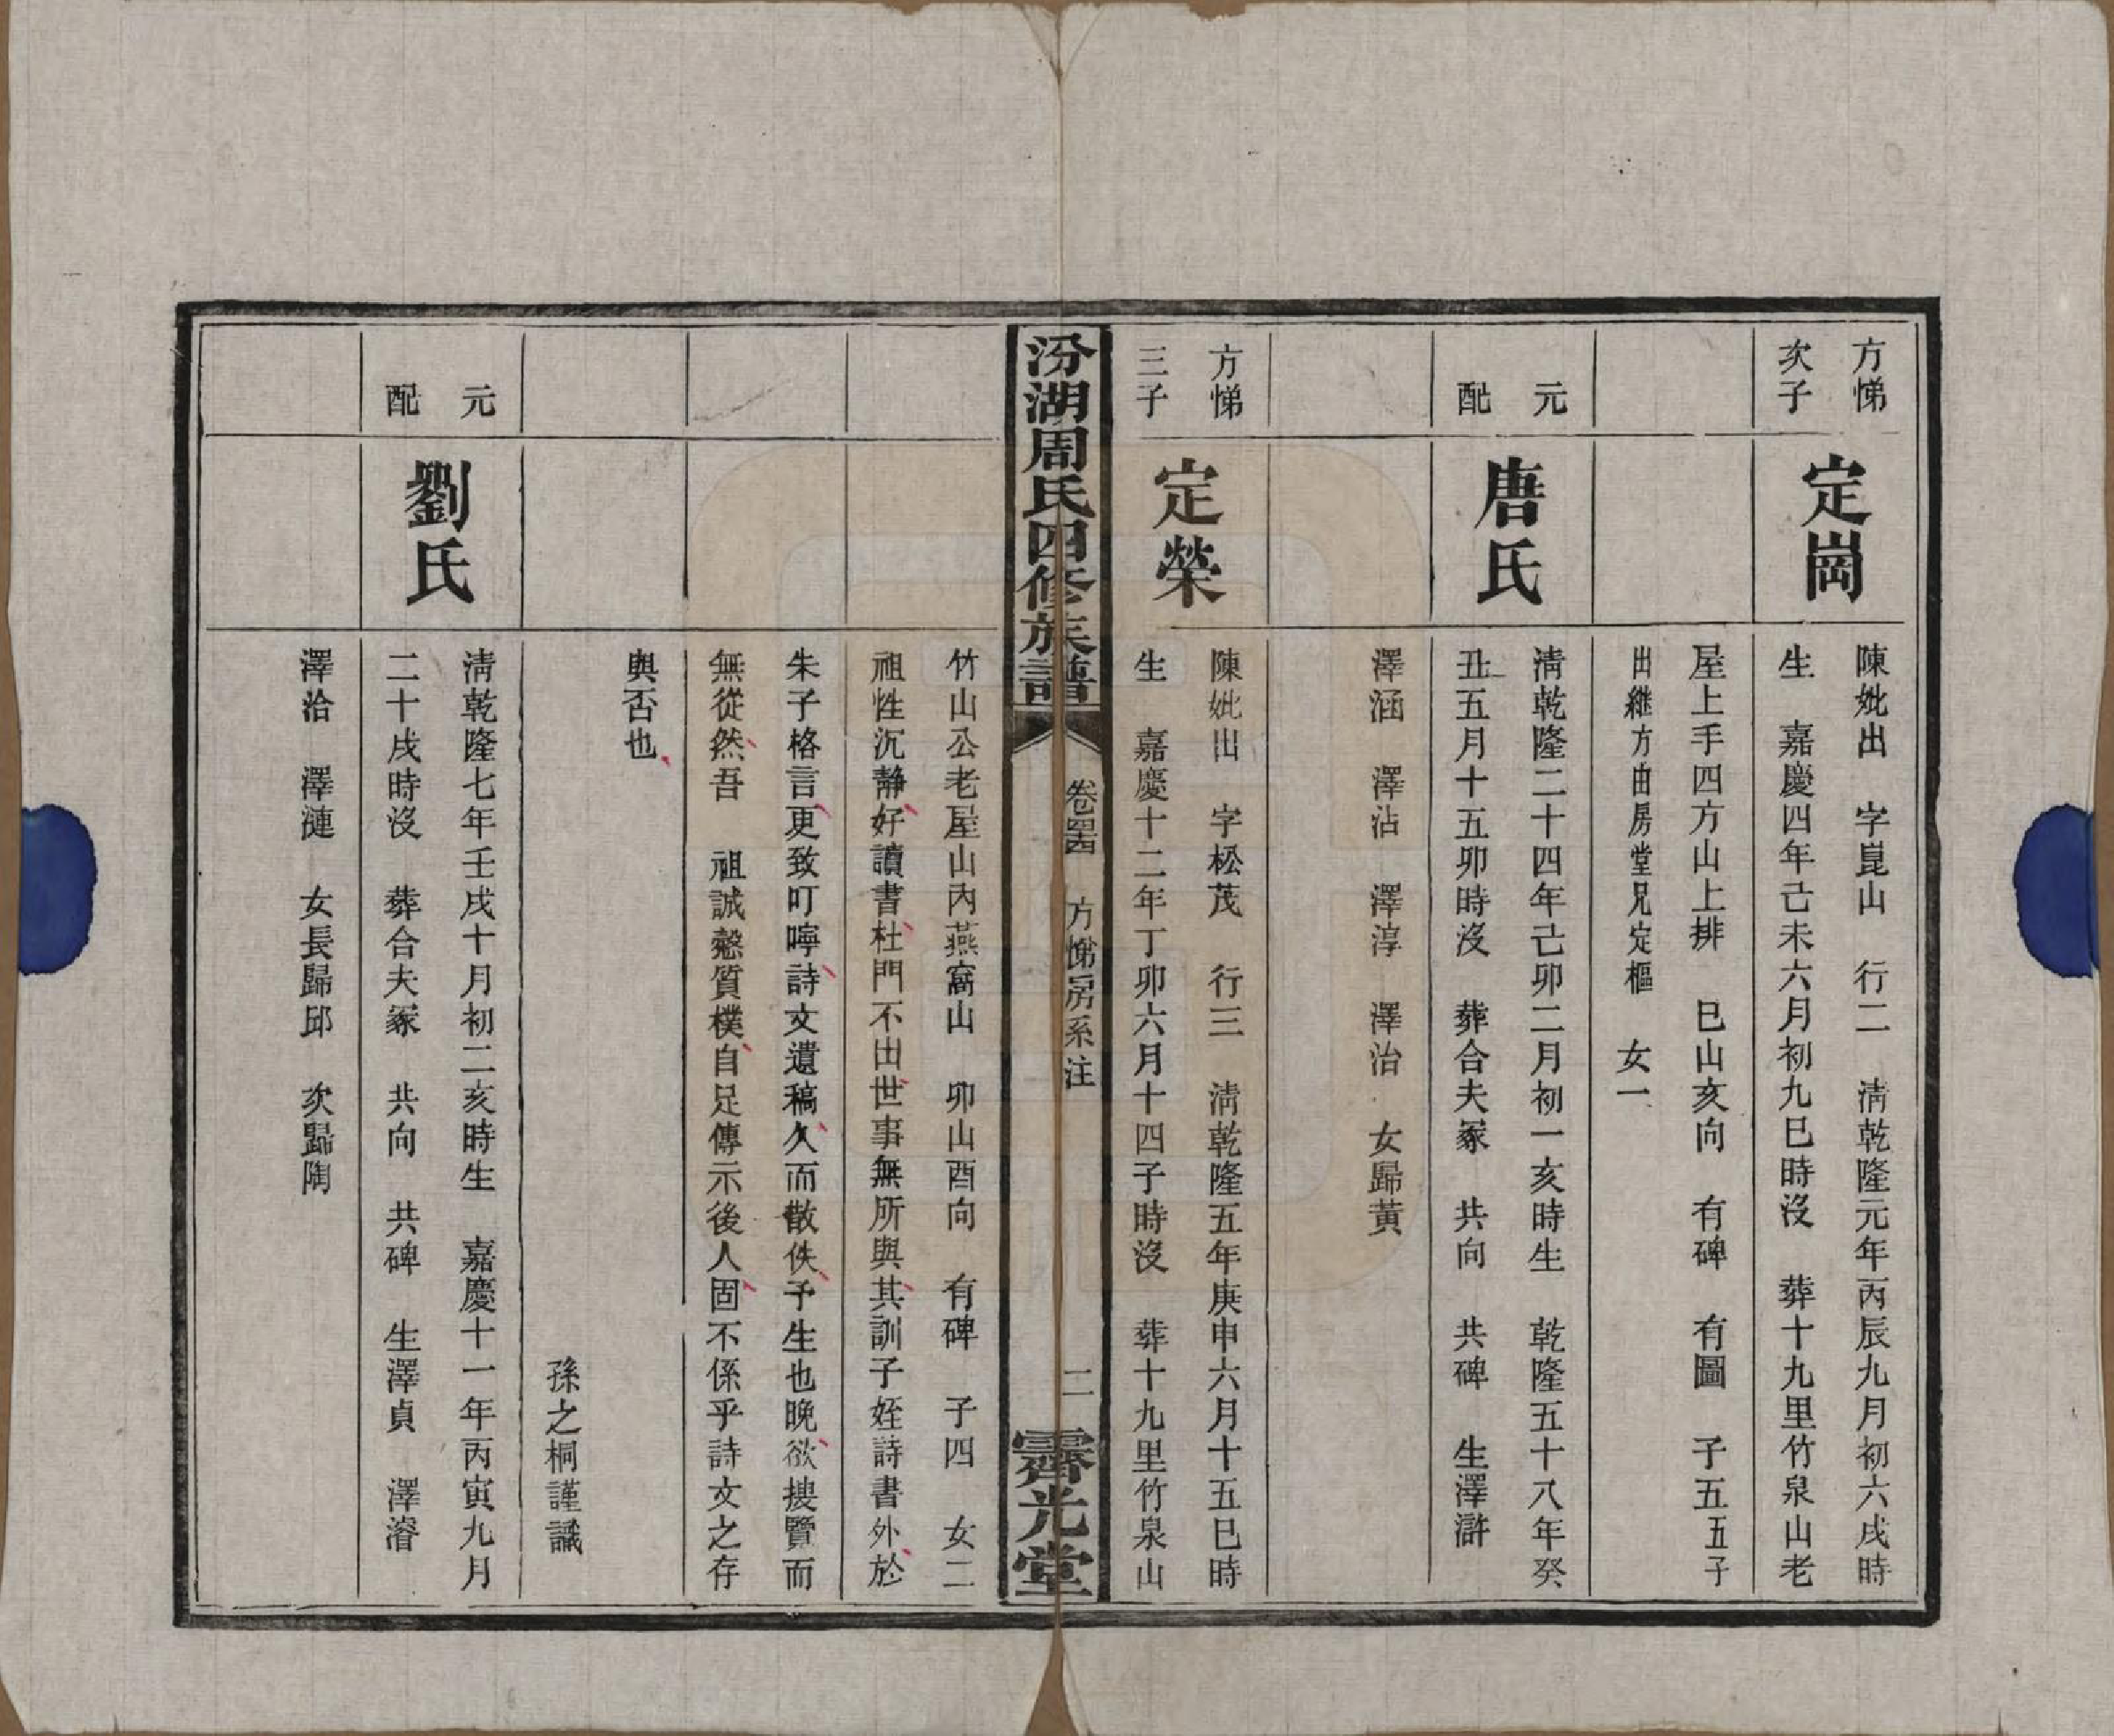 方悌
次子
定崗
陳妣出　字崑山　行二　淸乾隆元年丙辰九月初六戌時
生　嘉慶四年己未六月初九巳時沒　葬十九里竹泉山老
屋上手四方山上排　巳山亥向　有碑　有圖　子五五子
出繼方由房堂兄定樞　女一
元
配
唐氏
淸乾隆二十四年己卯二月初一亥時生　乾隆五十八年癸
丑五月十五卯時沒　葬合夫冢　共向　共碑　生澤滸
澤涵　澤沾　澤淳　澤治　女歸黃
方悌
三子
定榮
陳妣出　字松茂　行三　淸乾隆五年庚申六月十五巳時
生　嘉慶十二年丁卯六月十四子時沒　葬十九里竹泉山
汾湖周氏四修族譜
卷四　方悌房系注
二
霽光堂
竹山公老屋山內燕窩山　卯山酉向　有碑　子四　女二
祖性沉靜好讀書杜門不出世事無所與其訓子姪詩書外於
朱子格言更致叮嚀詩文遺稿久而散佚予生也晚欲搜覽而
無從然吾　祖誠愨質樸自足傳示後人固不係乎詩文之存
與否也
孫之桐謹識
元
配
劉氏
淸乾隆七年壬戌十月初二亥時生　嘉慶十一年丙寅九月
二十戌時沒　葬合夫冢　共向　共碑　生澤貞　澤濬
澤洽　澤漣　女長歸邱　次歸陶